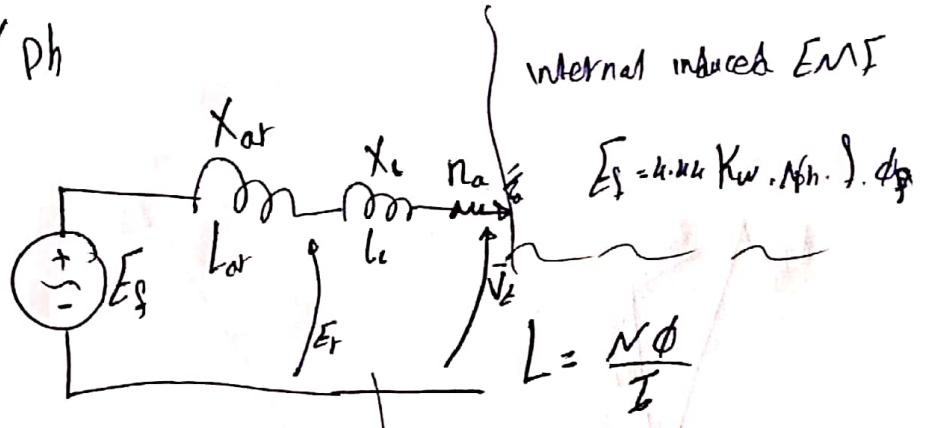 / ph
internal induced EMF
X_ar
X_l
r_a
E_f = 4.44 K_w . N_ph . f . ϕ_p
L_ar
L_l
+
-
E_f
E_r
V̅_t
L = Nϕ / I